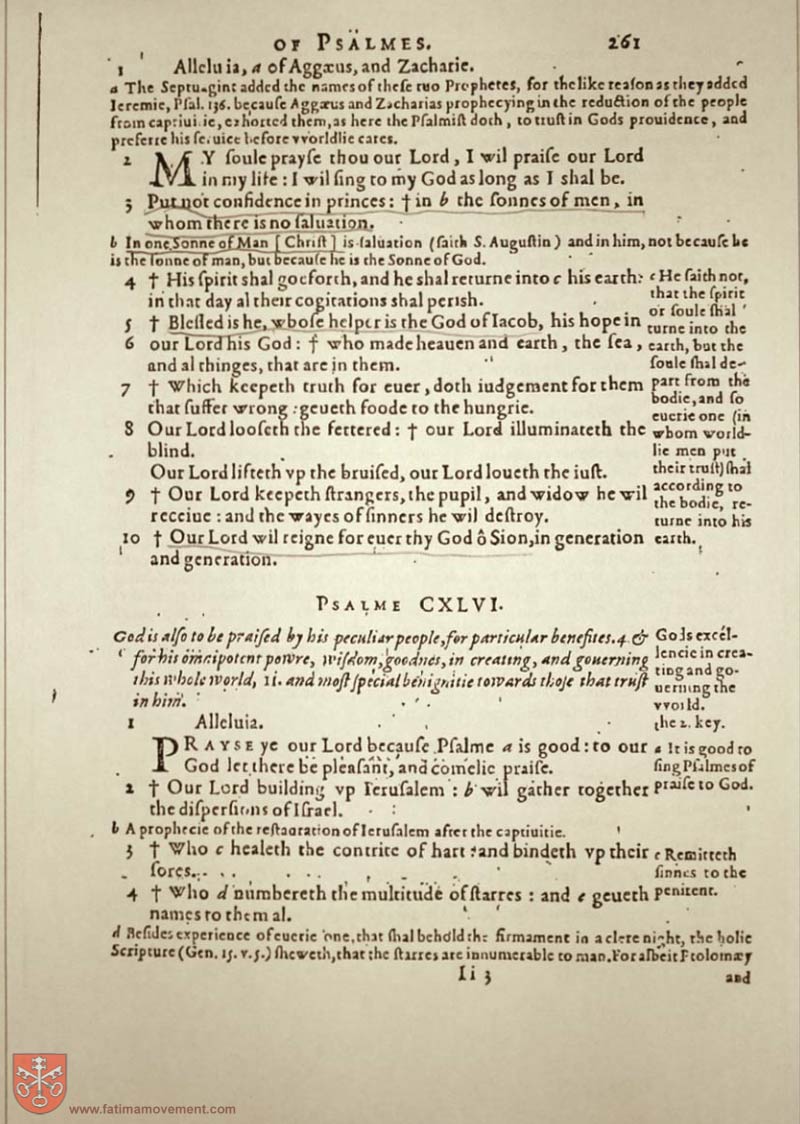 OF PSALMES. 261
1 Alleluia, a of Aggæus, and Zacharie.
a The Septuagint added the names of theſe two Prophetes, for the like reaſon as they added
Ieremie, Pſal. 136. becauſe Aggæus and Zacharias prophecying in the reduction of the people
from captiuitie, exhorted them, as here the Pſalmiſt doth, to truſt in Gods prouidence, and
preferre his ſeruice before vvorldlie cares.
2 MY ſoule prayſe thou our Lord, I wil praiſe our Lord
in my life: I wil ſing to my God as long as I shal be.
3 Put not confidence in princes: † in b the ſonnes of men, in
whom there is no ſaluation.
b In one Sonne of Man [Chriſt] is ſaluation (ſaith S. Auguſtin) and in him, not becauſe he
is the ſonne of man, but becauſe he is the Sonne of God.
4 † His ſpirit shal goe forth, and he shal returne into c his earth:
in that day al their cogitations shal perish.
5 † Bleſſed is he, whoſe helper is the God of Iacob, his hope in
6 our Lord his God: † who made heauen and earth, the ſea,
and al thinges, that are in them.
7 † Which keepeth truth for euer, doth iudgement for them
that ſuffer wrong: geueth foode to the hungrie.
8 Our Lord looſeth the fettered: † our Lord illuminateth the
blind.
Our Lord lifteth vp the bruiſed, our Lord loueth the iuſt.
9 † Our Lord keepeth strangers, the pupil, and widow he wil
receiue: and the wayes of ſinners he wil deſtroy.
10 † Our Lord wil reigne for euer thy God ô Sion, in generation
and generation.
c He ſaith not,
that the ſpirit
or ſoule ſhal
turne into the
earth, but the
ſoule ſhal de-
part from the
bodie, and ſo
euerie one (in
whom world-
lie men put
their truſt) ſhal
according to
the bodie, re-
turne into his
earth.
PSALME CXLVI.
God is alſo to be praiſed by his peculiar people, for particular benefites. 4. &
for his omnipotent powre, wiſdom, goodnes, in creating, and gouerning
this whole world, 11. and moſt ſpecial benignitie towards thoſe that truſt
in him.
Gods excel-
lencie in crea-
ting and go-
uerning the
vvorld.
the 2. key.
1 Alleluia.
PRAYSE ye our Lord becauſe Pſalme a is good: to our
God let there be pleaſant, and comelie praiſe.
2 † Our Lord building vp Ieruſalem: b wil gather together
the diſperſions of Iſrael.
a It is good to
ſing Pſalmes of
praiſe to God.
b A prophecie of the reſtauration of Ieruſalem after the captiuitie.
3 † Who c healeth the contrite of hart: and bindeth vp their
ſores.
4 † Who d numbereth the multitude of ſtarres: and e geueth
names to them al.
c Remitteth
ſinnes to the
penitent.
d Beſides experience of euerie one, that ſhal behold the firmament in a clere night, the holie
Scripture (Gen. 15. v. 5.) ſheweth, that the ſtarres are innumerable to man. For albeit Ptolomæy
Ii 3 and
www.fatimamovement.com